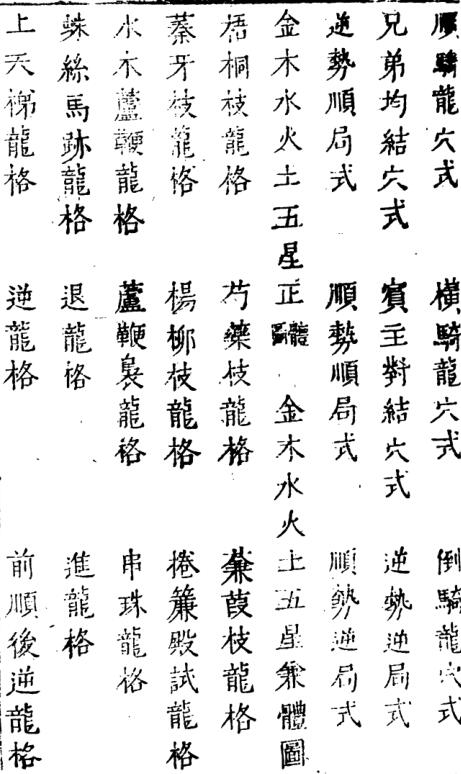 順騎龍穴式 橫騎龍穴式 倒騎龍穴式
兄弟均結穴式 賓主對結穴式 逆勢逆局式
逆勢順局式 順勢順局式 順勢逆局式
金木水火土五星正體圖 金木水火土五星兼體圖
梧桐枝龍格 芍藥枝龍格 蒹葭枝龍格
蓁牙枝龍格 楊柳枝龍格 捲簾殿試龍格
水木蘆鞭龍格 蘆鞭裊龍格 串珠龍格
蛛絲馬跡龍格 退龍格 進龍格
上天梯龍格 逆龍格 前順後逆龍格